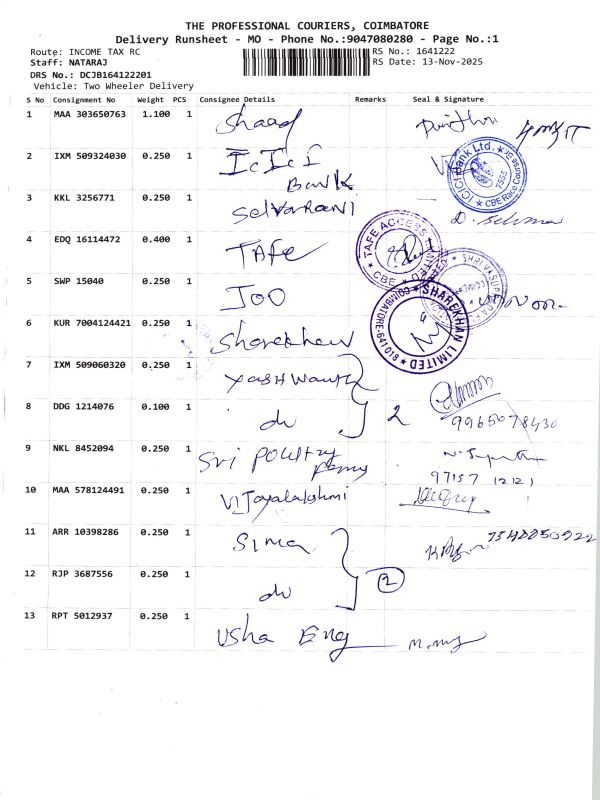 THE PROFESSIONAL COURIERS, COIMBATORE
Delivery Runsheet - MO - Phone No.:9047080280 - Page No.:1
Route: INCOME TAX RC
RS No.: 1641222
Staff: NATARAJ
RS Date: 13-Nov-2025
DRS No.: DCJB164122201
Vehicle: Two Wheeler Delivery
S No Consignment No Weight PCS Consignee Details Remarks Seal & Signature
1 MAA 303650763 1.100 1
2 IXM 509324030 0.250 1 ICICI Bank
ICICI Bank Ltd. CBE Race Course Br.
3 KKL 3256771 0.250 1 Selvarani
4 EDQ 16114472 0.400 1 TAFE
TAFE ACCESS LIMITED CBE
5 SWP 15040 0.250 1
6 KUR 7004124421 0.250 1 Sharekhan
SHAREKHAN LIMITED COIMBATORE-641 018
7 IXM 509060320 0.250 1
8 DDG 1214076 0.100 1 do 2
9965078430
9 NKL 8452094 0.250 1 Sri Poultry
97157 12121
10 MAA 578124491 0.250 1 Vijayalakshmi
11 ARR 10398286 0.250 1 Sima
12 RJP 3687556 0.250 1 do 2
13 RPT 5012937 0.250 1 Usha Eng